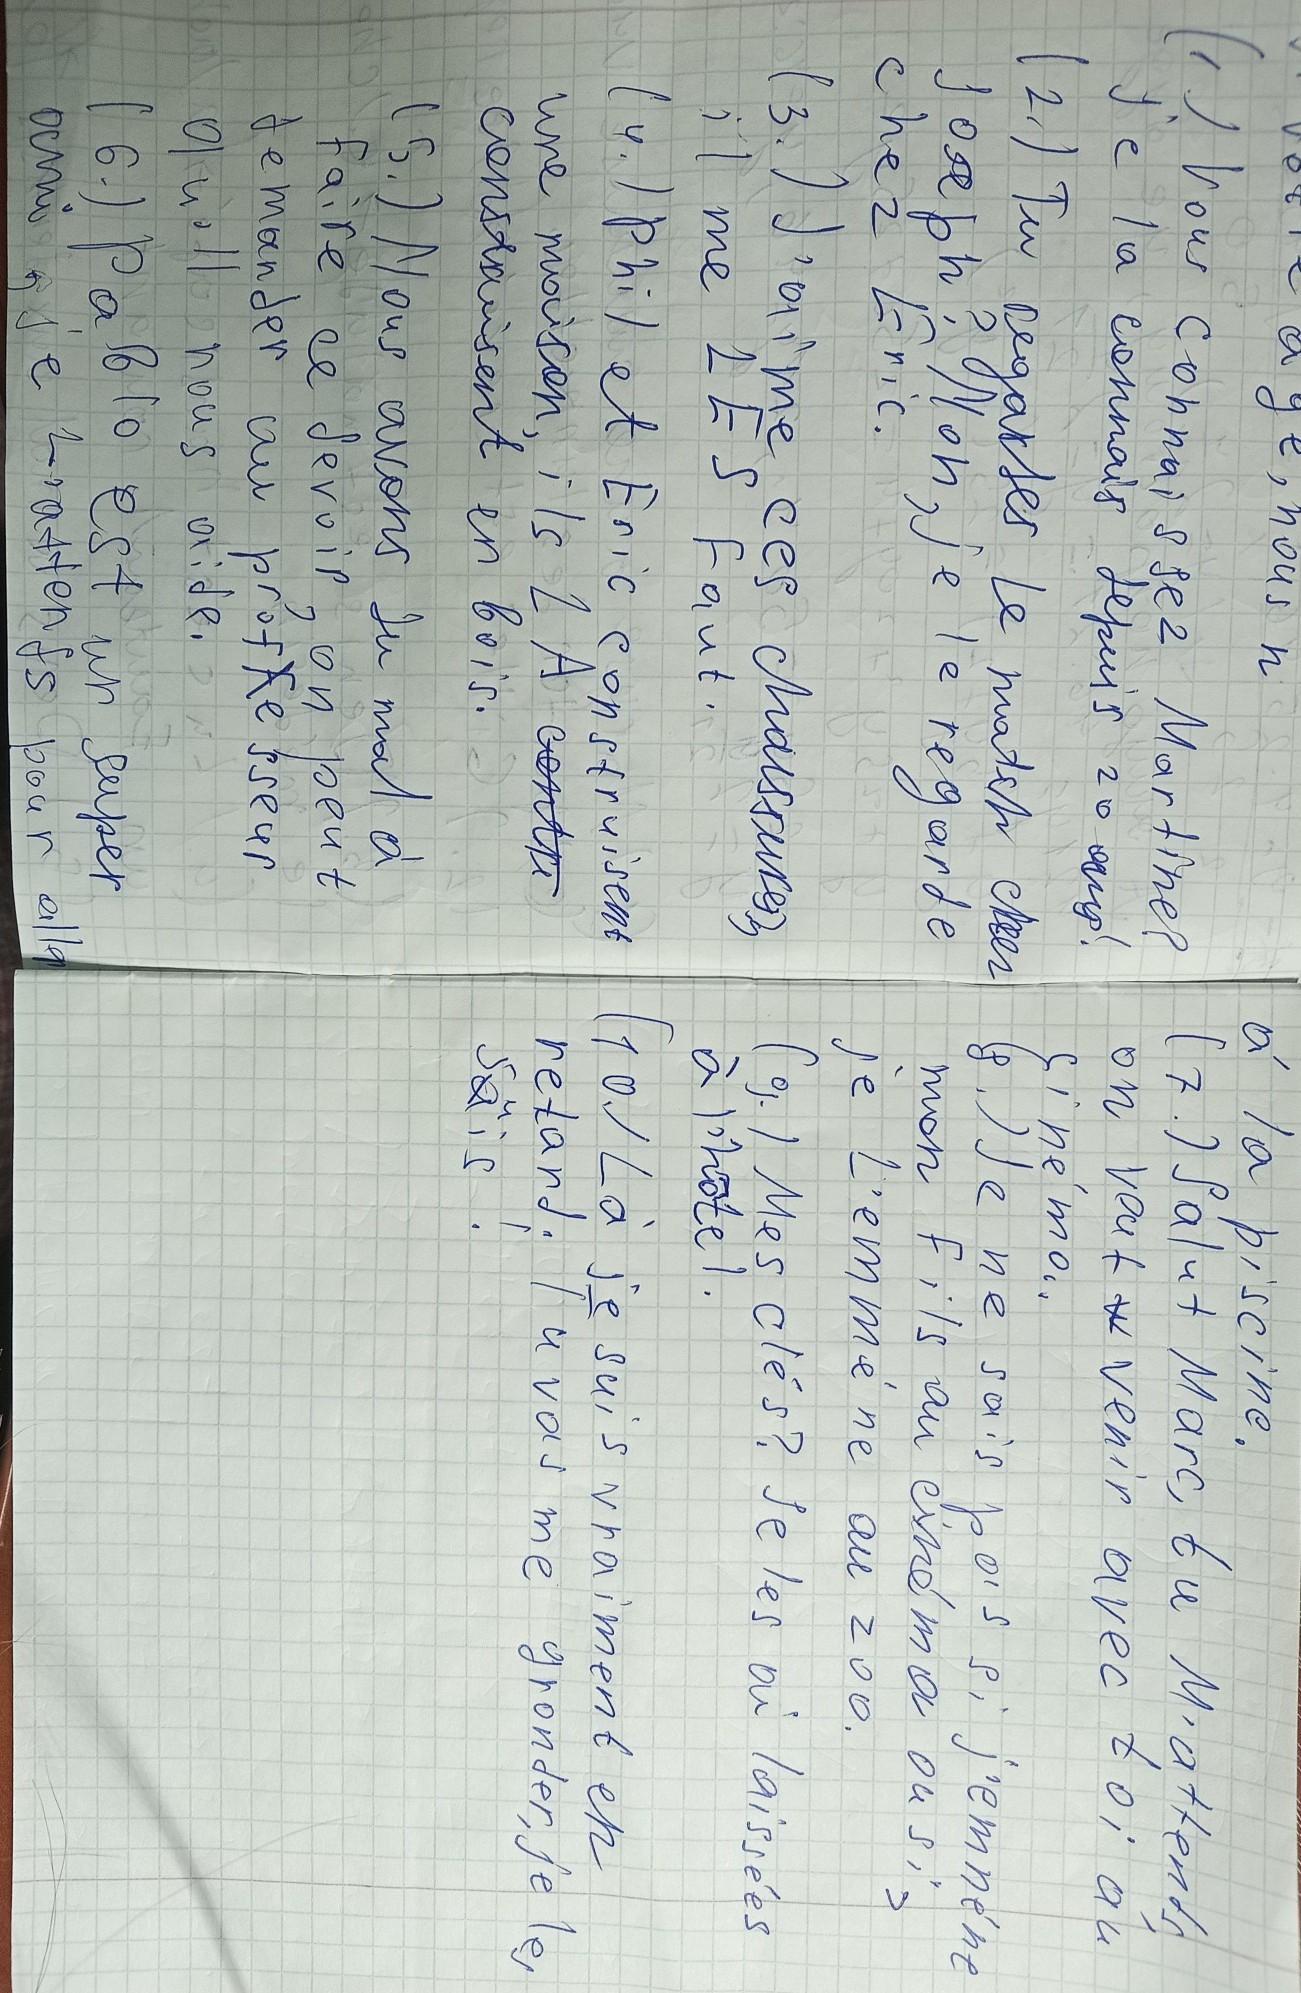 votre âge, nous n
(1.) Vous connaissez Martine?
je la connais depuis 20 ans!
(2.) Tu regardes le match chez
Joseph? Non, je le regarde
chez Eric.
(3.) J'aime ces chaussures,
il me LES faut.
(4.) phil et Eric construisent
une maison, ils LA
construisent en bois.
(5.) Nous avons du mal à
faire ce devoir, on peut
demander au professeur
qu'il nous aide.
(6.) Pablo est un super
ami, je L'attends pour alle
à la piscine.
(7.) Salut Marc, tu M'attends,
on vat venir avec toi au
cinéma.
(8.) Je ne sais pas si j'emméne
mon fils au cinéma ou si
je L'emméne au zoo.
(9.) Mes clés? Je les ai laissées
à l'hôtel.
(10.) Là je suis vraiment en
retard! Tu vas me gronder, je le
suis!